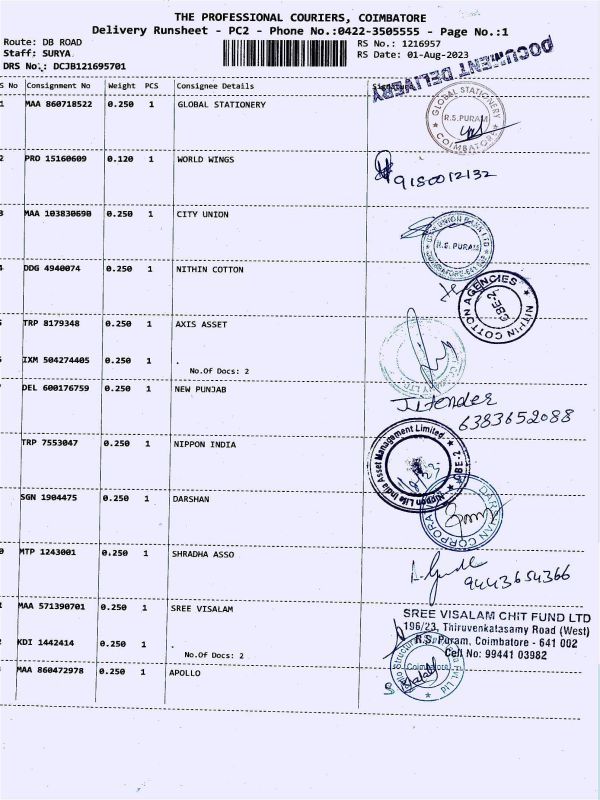 THE PROFESSIONAL COURIERS, COIMBATORE
Delivery Runsheet - PC2 - Phone No.:0422-3505555 - Page No.:1
Route: DB ROAD RS No.: 1216957
Staff: SURYA RS Date: 01-Aug-2023
DRS No.: DCJB121695701
DOCUMENT DELIVERY
S No Consignment No Weight PCS Consignee Details
1 MAA 860718522 0.250 1 GLOBAL STATIONERY
GLOBAL STATIONERY
R.S.PURAM
COIMBATORE
2 PRO 15160609 0.120 1 WORLD WINGS
9150012132
3 MAA 103830690 0.250 1 CITY UNION
R.S. PURAM
4 DDG 4940074 0.250 1 NITHIN COTTON
NITHIN COTTON AGENCIES
CBE-2
TRP 8179348 0.250 1 AXIS ASSET
IXM 504274405 0.250 1 .
No.Of Docs: 2
DEL 600176759 0.250 1 NEW PUNJAB
Jitender
6383652088
TRP 7553047 0.250 1 NIPPON INDIA
Nippon Life India Asset Management Limited
CBE-2
SGN 1904475 0.250 1 DARSHAN
DARSHAN CORPORA
0 MTP 1243001 0.250 1 SHRADHA ASSO
9443654366
MAA 571390701 0.250 1 SREE VISALAM
SREE VISALAM CHIT FUND LTD
196/23, Thiruvenkatasamy Road (West)
R.S. Puram, Coimbatore - 641 002
Cell No: 99441 03982
KDI 1442414 0.250 1 .
No.Of Docs: 2
MAA 860472978 0.250 1 APOLLO
Coimbatore